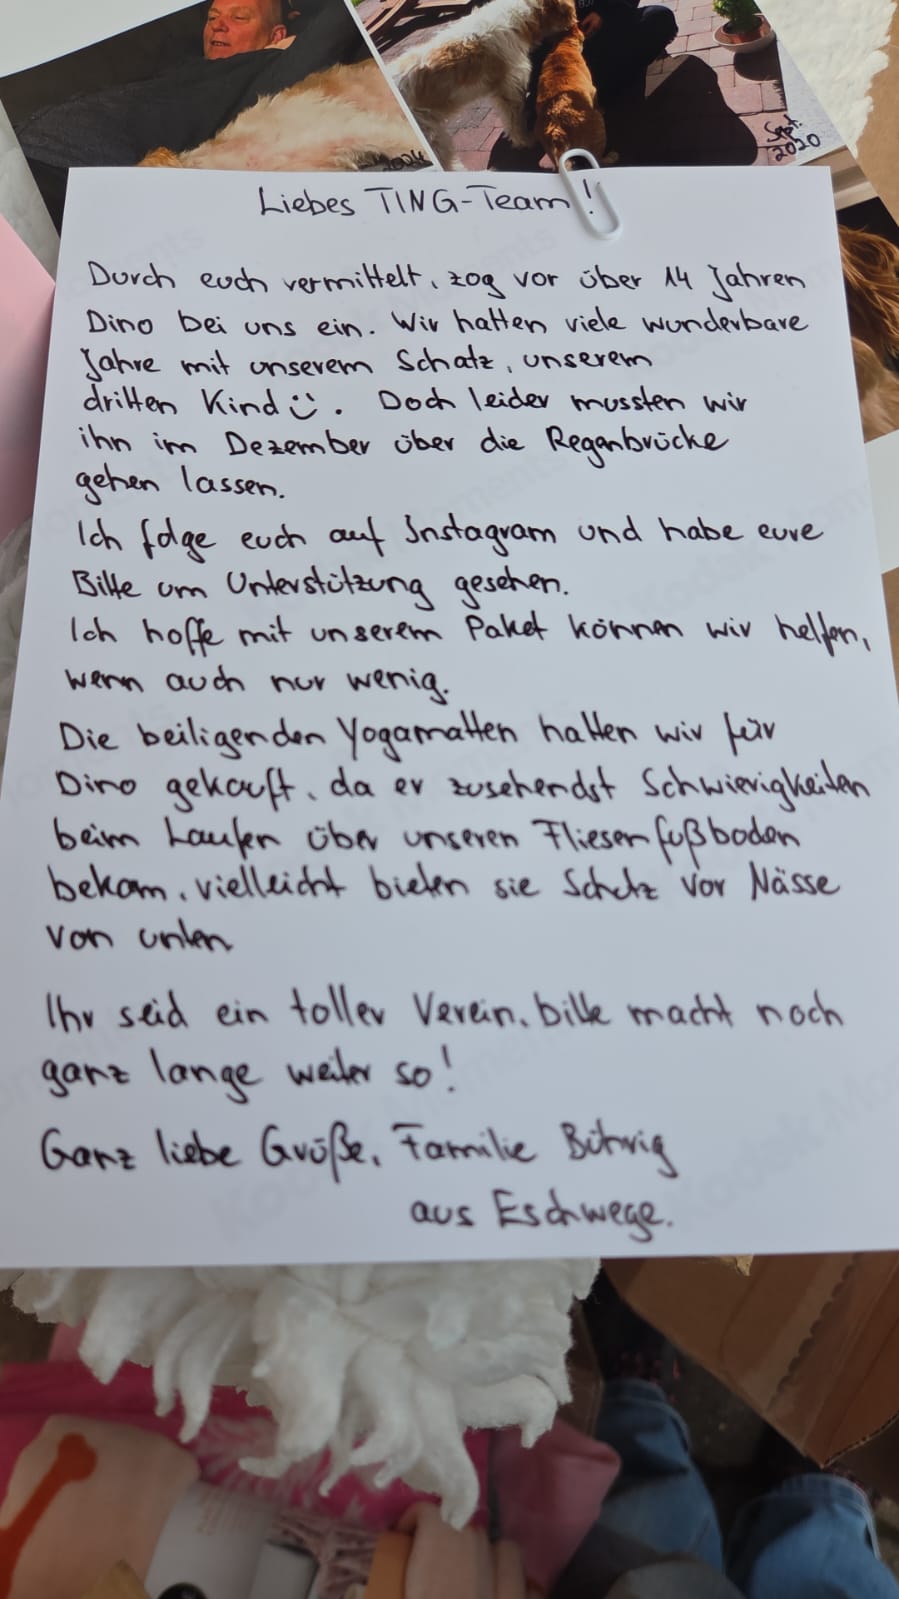 Sept.
2020
Liebes TING-Team!
Durch euch vermittelt, zog vor über 14 Jahren
Dino bei uns ein. Wir hatten viele wunderbare
Jahre mit unserem Schatz, unserem
dritten Kind ☺. Doch leider mussten wir
ihn im Dezember über die Regenbrücke
gehen lassen.
Ich folge euch auf Instagram und habe eure
Bitte um Unterstützung gesehen.
Ich hoffe mit unserem Paket können wir helfen,
wenn auch nur wenig.
Die beiligenden Yogamatten hatten wir für
Dino gekauft, da er zusehendst Schwierigkeiten
beim Laufen über unseren Fliesenfußboden
bekam, vielleicht bieten sie Schutz vor Nässe
von unten
Ihr seid ein toller Verein, bitte macht noch
ganz lange weiter so!
Ganz liebe Grüße, Familie Bührig
aus Eschwege.